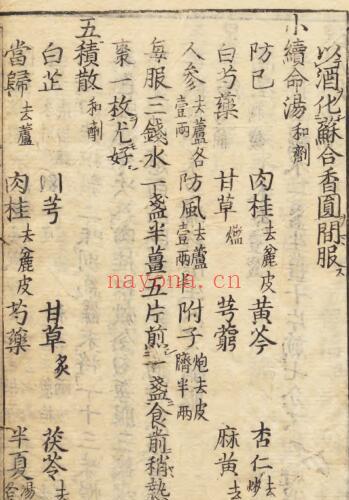 以酒化蘇合香圓間服
小續命湯和劑
防已 肉桂去麄皮 黄芩 杏仁去
白芍藥 甘草爁 芎藭 麻黄去
人參去蘆各壹兩 防風去蘆壹兩半 附子炮去皮臍半兩
每服三錢水一盞半薑五片煎一盞食前稍熱
棗一枚尤好
五積散和劑
白芷 川芎 甘草炙 茯苓去
當歸去蘆 肉桂去麄皮 芍藥 半夏湯
nayona.cn